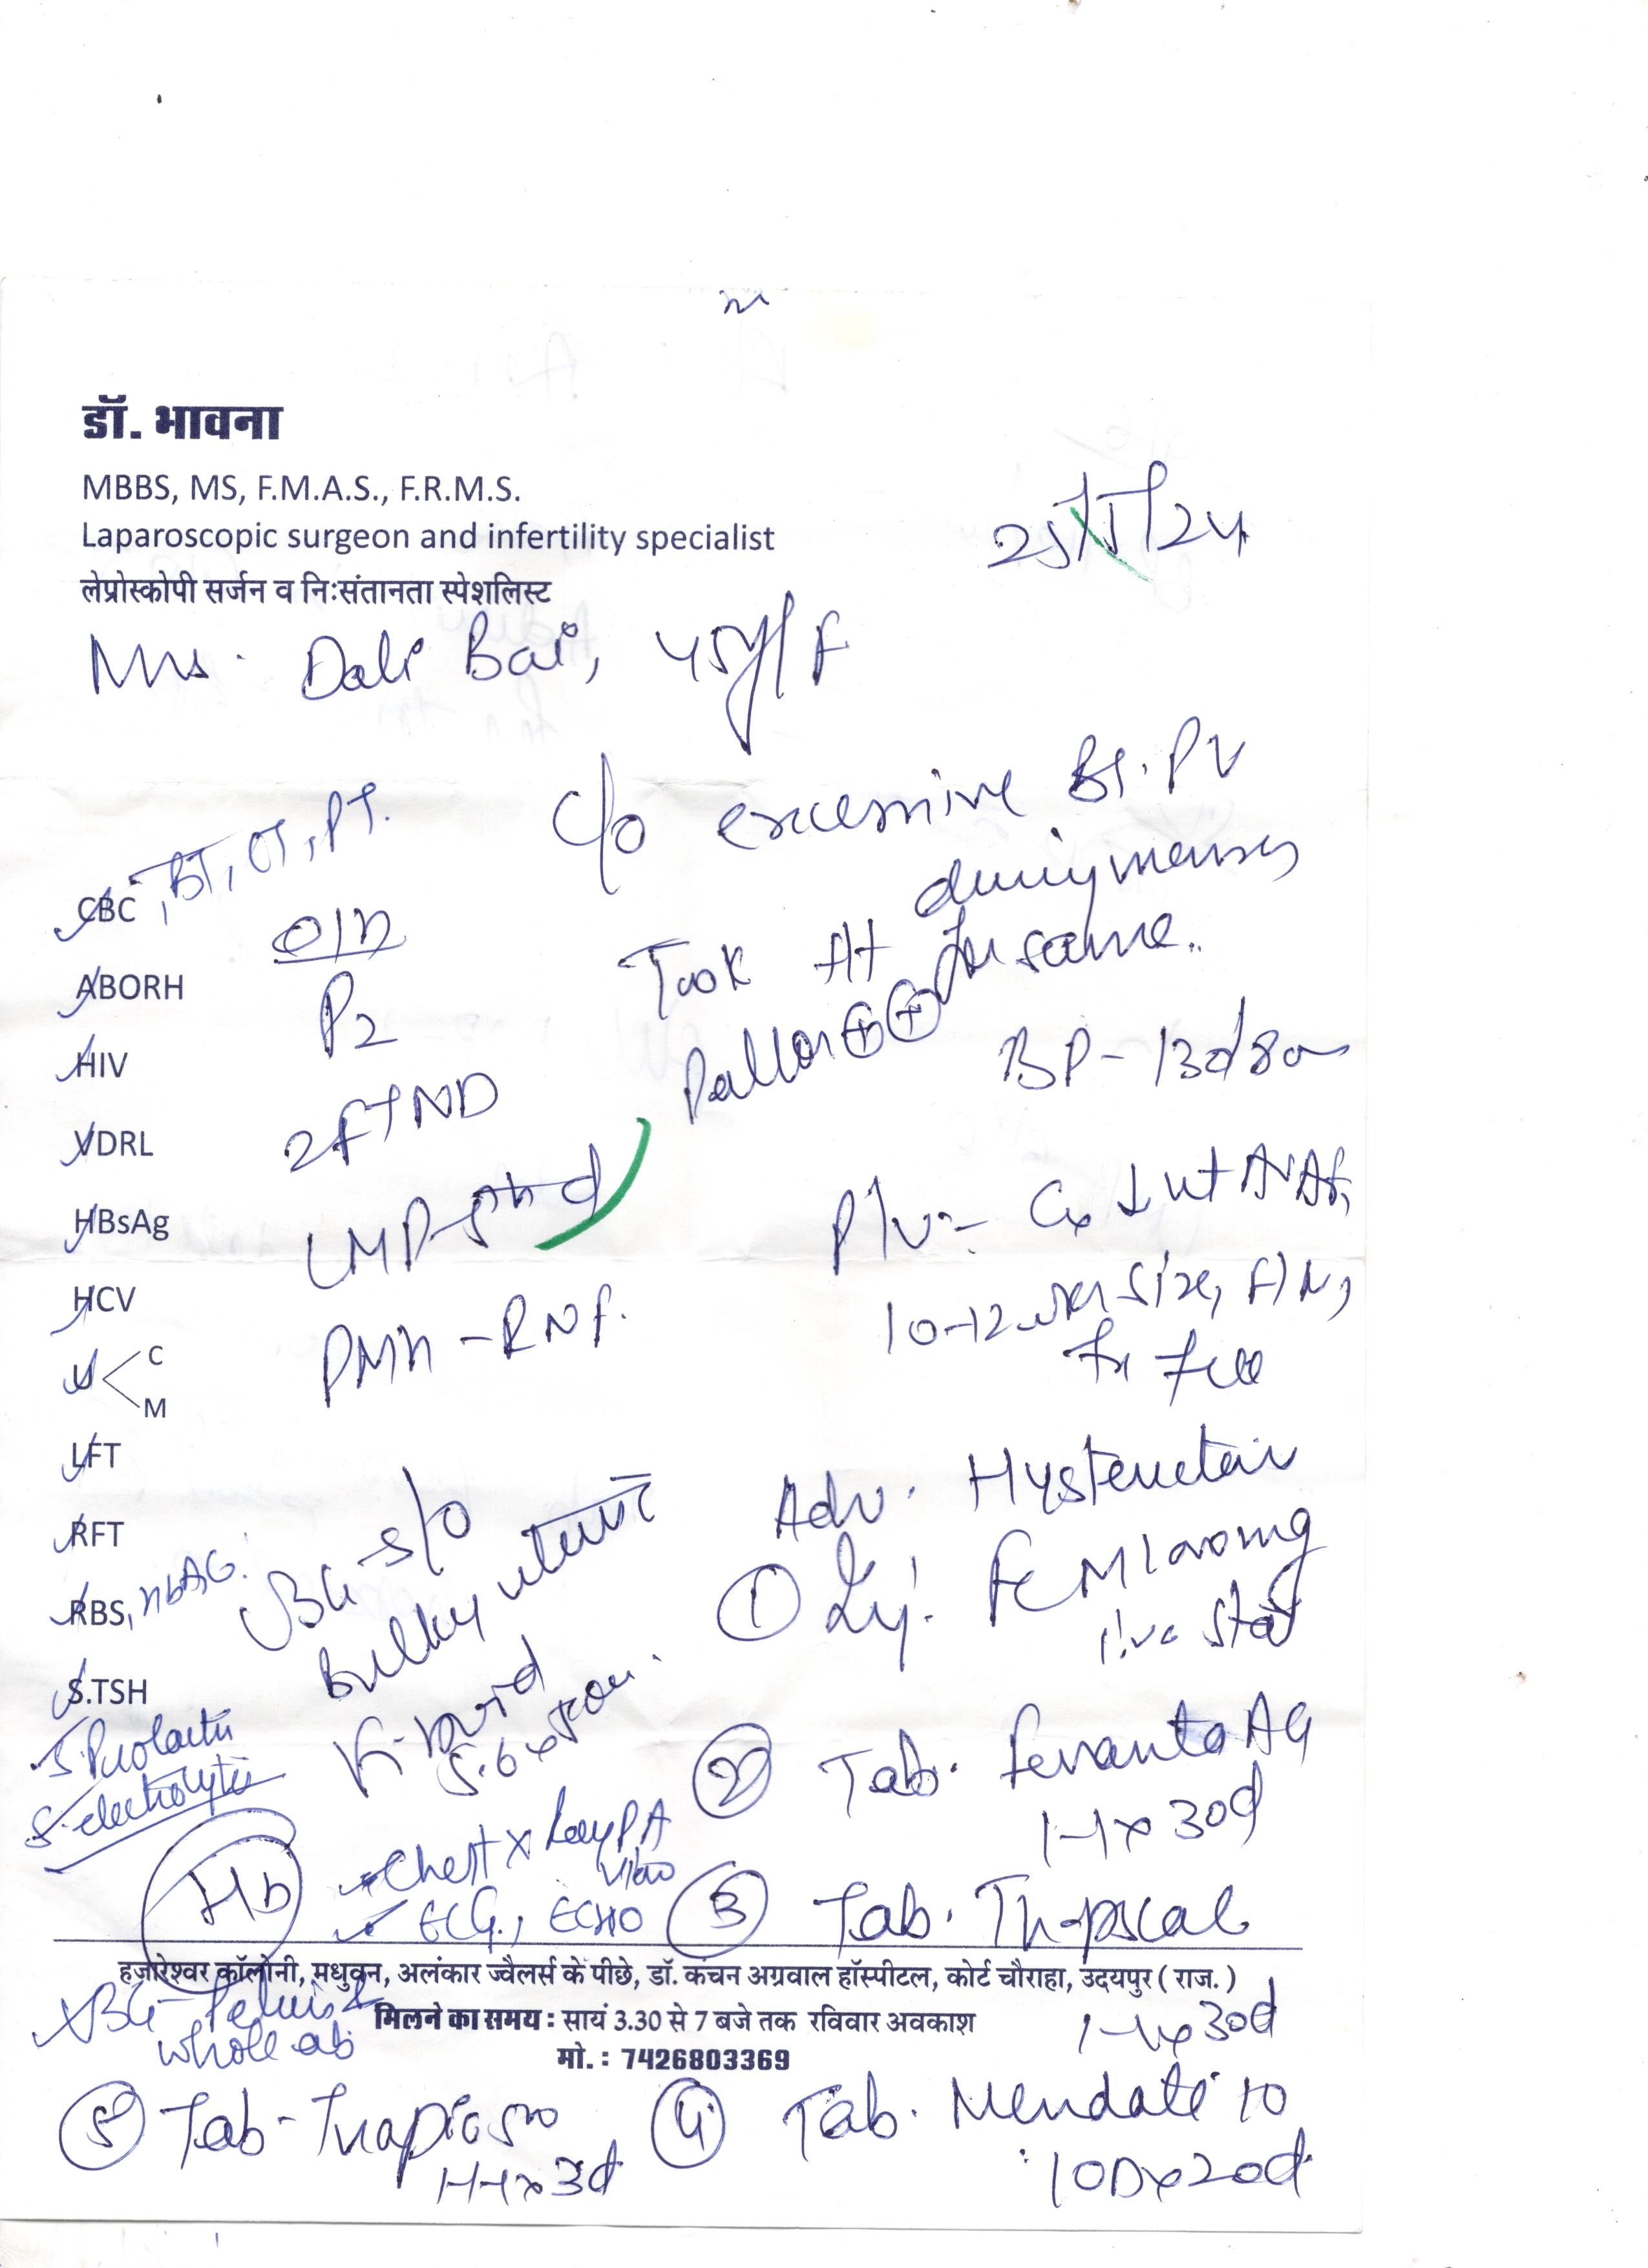 डॉ. भावना
MBBS, MS, F.M.A.S., F.R.M.S.
Laparoscopic surgeon and infertility specialist
लेप्रोस्कोपी सर्जन व निःसंतानता स्पेशलिस्ट
25/5/24
Mrs. Dali Bai, 45y/F
c/o excessive Bl. PV
during menses
Took t/t for same.
Pallor ++
BP - 130/80
CBC, BT, CT, PT.
ABORH
HIV
VDRL
HBsAg
HCV
C
M
LFT
RFT
RBS,
S.TSH
S. Prolactin
S. electrolytes
Hb
O/H
P2
2FTND
LMP - 5th d
PMH - RNF.
P/V :- Cx
10-12 wk size,
s/o
Bulky uterus
Chest X Ray PA
view
ECG, ECHO
Pelvis &
whole ab
Adv.
① Inj.
stat
② Tab.
1-1 x 30d
③ Tab.
1-1 x 30d
हजारेश्वर कॉलोनी, मधुवन, अलंकार ज्वैलर्स के पीछे, डॉ. कंचन अग्रवाल हॉस्पीटल, कोर्ट चौराहा, उदयपुर ( राज. )
मिलने का समय : सायं 3.30 से 7 बजे तक रविवार अवकाश
मो. : 7426803369
④ Tab. 10
10D x 20d
⑤ Tab - 500
1-1-1 x 3d